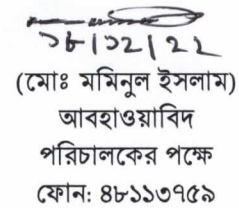 ১৮/১২/২২
(মোঃ মমিনুল ইসলাম)
আবহাওয়াবিদ
পরিচালকের পক্ষে
ফোন: ৪৮১১৩৭৫৯